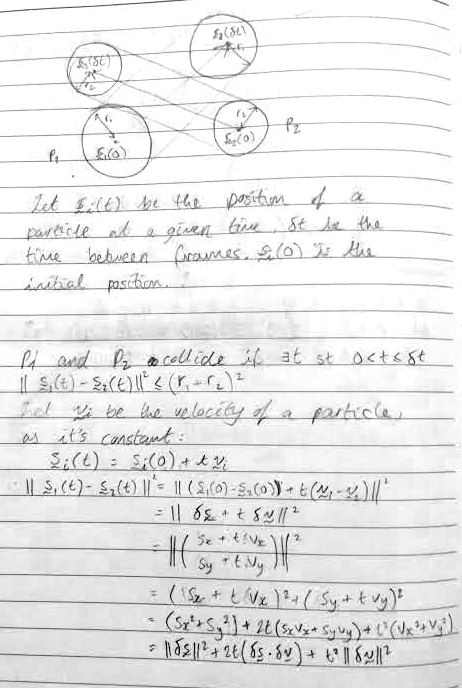 s₂(δt)
s₁(δt)
r₂
r₁
r₁
r₂
s₁(0)
s₂(0)
P₁
P₂
Let s_i(t) be the position of a
particle at a given time, δt be the
time between frames. s_i(0) is the
initial position.
P1 and P₂ collide if ∃t st 0<t≤δt
|| s₁(t) - s₂(t)||² ≤ (r₁+r₂)²
Let v_i be the velocity of a particle,
as it's constant:
s_i(t) = s_i(0) + t v_i
|| s₁(t) - s₂(t) ||² = || (s₁(0) - s₂(0)) + t(v₁ - v₂)||²
= || δs + t δv ||²
= ||( Sx + t δVx
Sy + t Vy )||²
= ( Sx + t Vx )² + ( Sy + t Vy )²
= (Sx² + Sy²) + 2t (SxVx + SyVy) + t² (Vx² + Vy²)
= ||δs||² + 2t (δs · δv) + t² || δv||²